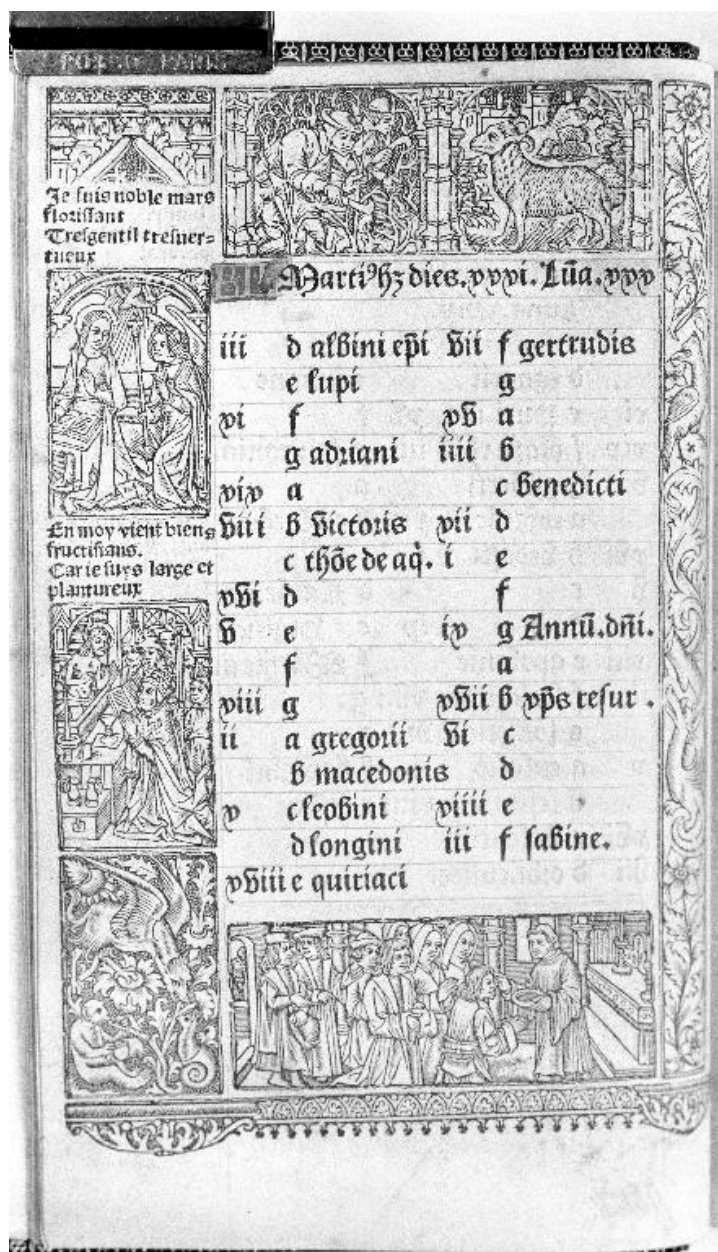 PARIS
Je suis noble mars
florissant
Tresgentil tresver-
tueux
En moy vient biens
fructifians.
Car ie suys large et
plantureux
KL Martiꝰ hꝫ dies. xxxi. Lūa. xxx
iii d albini ep̄i
e lupi
xi f
g adriani
xix a
viii b victoris
c thōe de aq̄.
xvi d
v e
f
xiii g
ii a gregorii
b macedonis
x c leobini
d longini
xviii e quiriaci
vii f gertrudis
g
xv a
iiii b
c benedicti
xii d
i e
f
ix g Annū. dn̄i.
a
xvii b xp̄s resur.
vi c
d
xiiii e
iii f sabine.